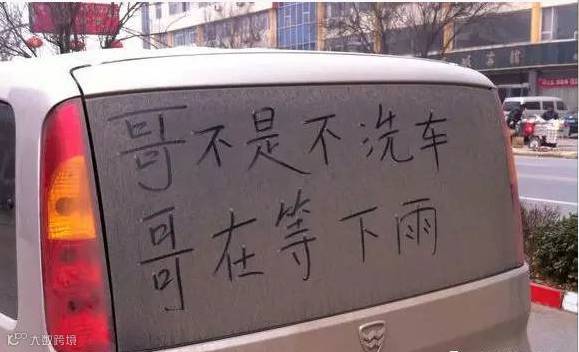 哥不是不洗车
哥在等下雨
大数跨境